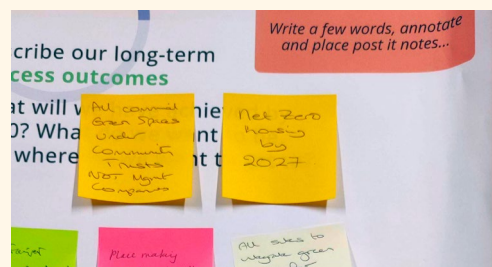 Write a few words, annotate
and place post it notes...
cribe our long-term
cess outcomes
at will
0? Wha
where
All
Green Spaces
under
Community
Trusts
NOT Mgmt
Companies
Net Zero
Housing
by
2027
Place making
All sites to
green